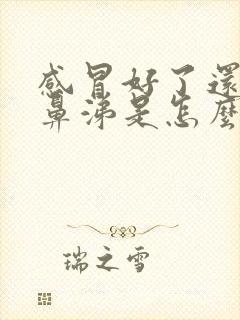 感冒好了還
鼻涕是怎麼
瑞之雪